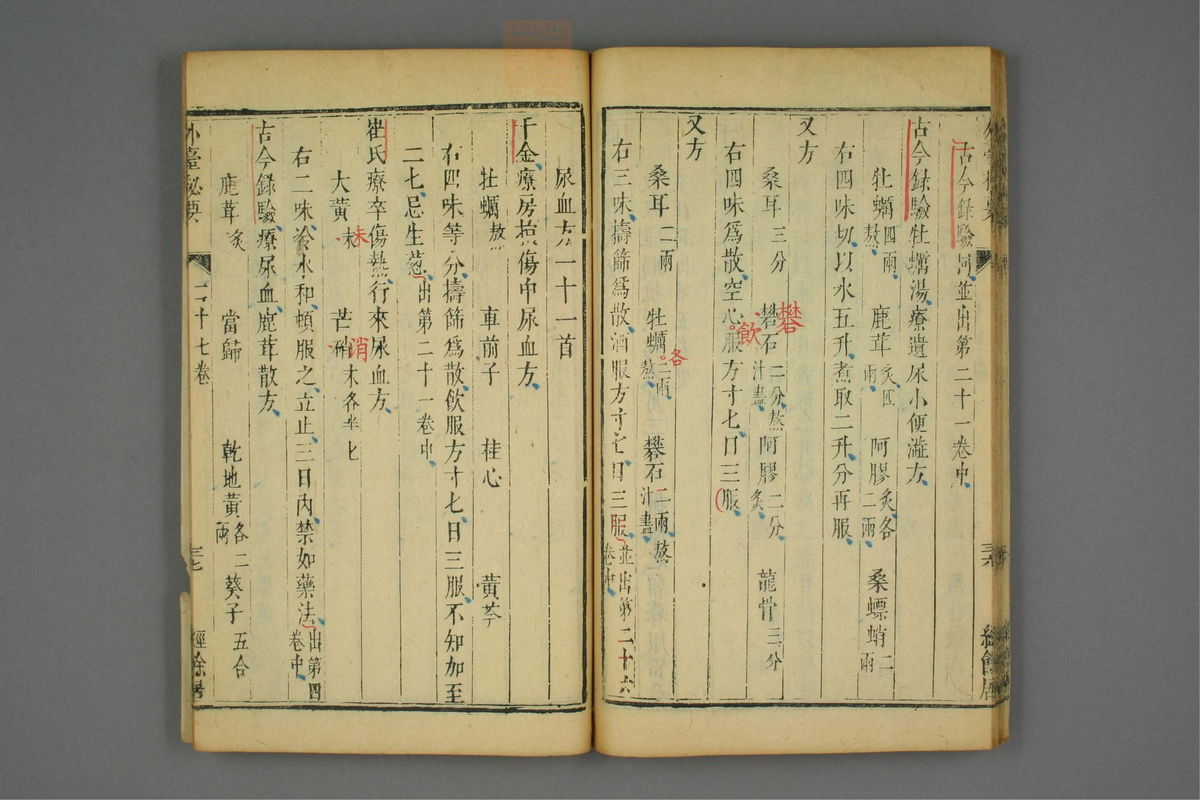 古今錄驗同並出第二十一卷中
古今錄驗牡蠣湯療遺尿小便澁方
牡蠣四兩熬 鹿茸炙四兩 阿膠炙各二兩 桑螵蛸二兩
右四味切以水五升煮取二升分再服
又方
桑耳三分 礬石二分熬汁盡 阿膠二分炙 龍骨三分
礬
右四味爲散空心服方寸七日三服
飲
又方
桑耳二兩 牡蠣三兩熬 礬石二兩熬汁盡
各
右三味擣篩爲散酒服方寸匕日三服並出第二十六卷中
三六
尿血方一十一首
千金療房損傷中尿血方
牡蠣熬 車前子 桂心 黃芩
右四味等分擣篩爲散飲服方寸七日三服不知加至
二七忌生葱出第二十一卷中
崔氏療卒傷熱行來尿血方
大黃末 芒硝末各半七
未 消
右二味冷水和頓服之立止三日內禁如藥法出第四卷中
古今錄驗療尿血鹿茸散方
鹿茸炙 當歸 乾地黃各二兩 葵子五合
外臺秘要 二十七卷 三七 經餘居